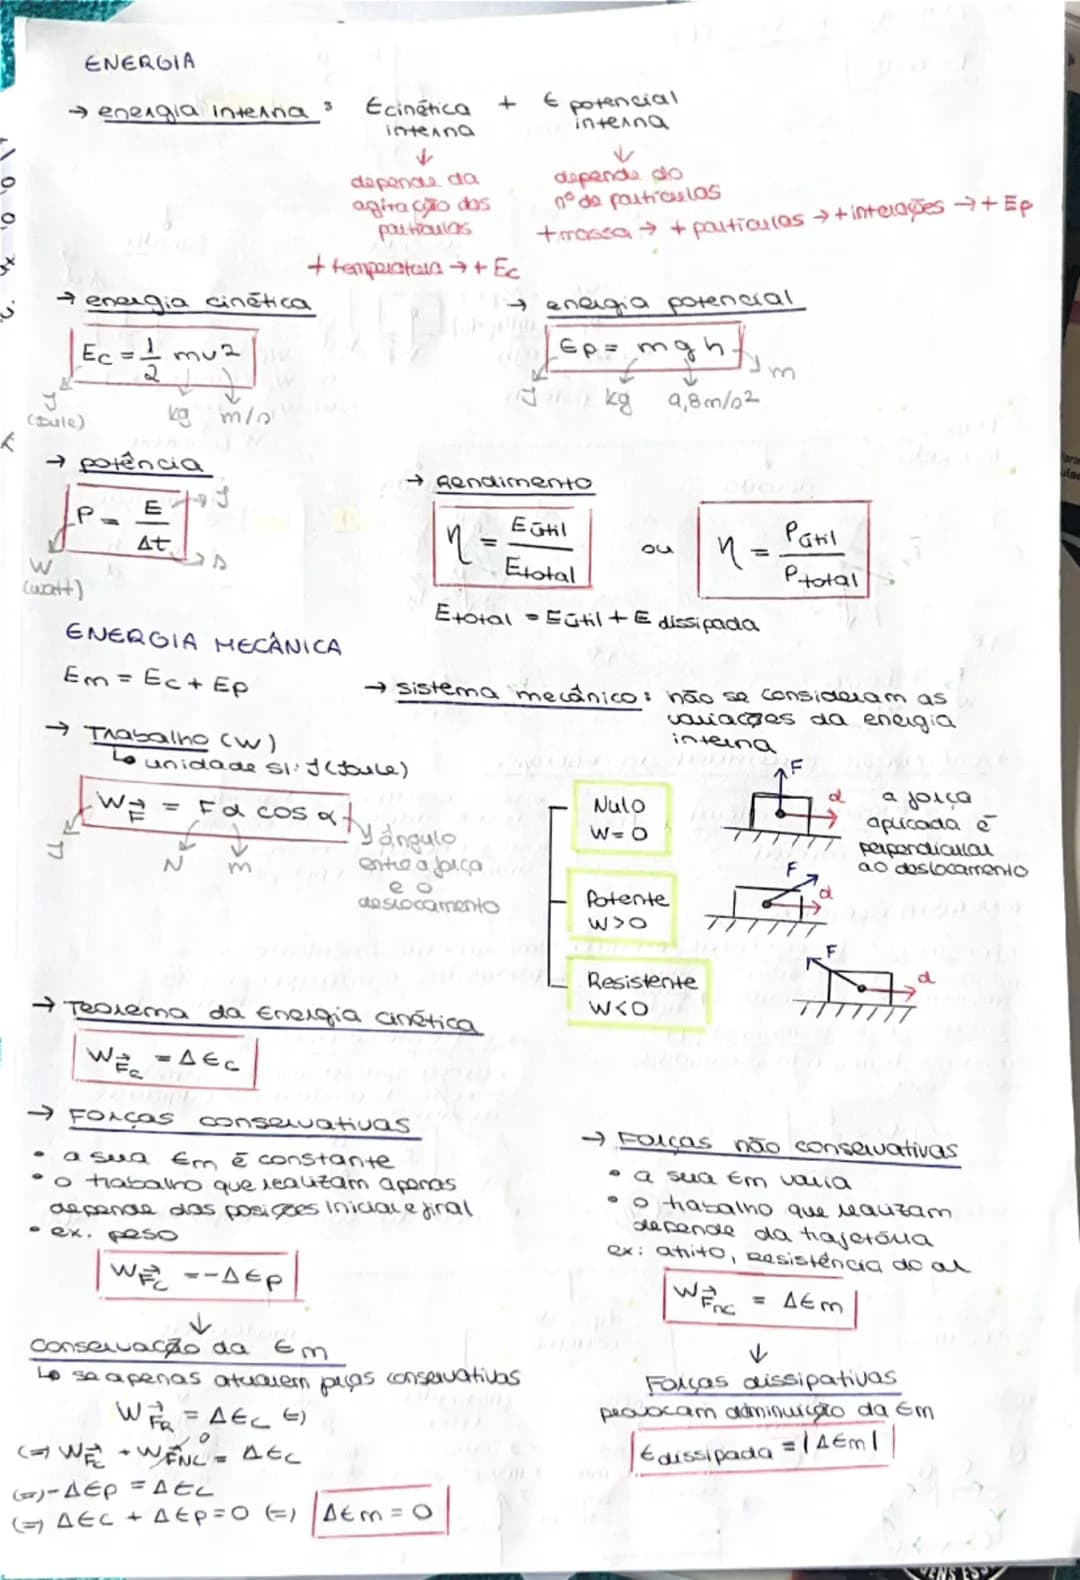 ENERGIA
→ energia interna : Ecinética interna + E potencial interna
↓ ↓
depende da agitação das partículas
depende do nº de partículas
+ massa → + partículas → + interações → + Ep
+ temperatura → + Ec
→ energia cinética
Ec = 1/2 mv2
J (Jule)
kg m/s
→ energia potencial
Ep = mgh
J kg 9,8m/s2 m
→ potência
P = E/Δt
J
s
W (watt)
→ Rendimento
η = Eútil/Etotal ou η = Pútil/Ptotal
Etotal = Eútil + E dissipada
ENERGIA MECÂNICA
Em = Ec + Ep
→ sistema mecânico: não se consideram as
variações da energia
interna
→ Trabalho (W)
↳ unidade SI: J (Joule)
W F⃗ = F d cos α
J N m
ângulo
entre a força
e o
deslocamento
Nulo
W = 0
F d
a força
aplicada é
perpendicular
ao deslocamento
Potente
W > 0
F d
Resistente
W < 0
F d
→ Teorema da Energia cinética
W F⃗R = ΔEc
→ Forças conservativas
• a sua Em é constante
• o trabalho que realizam apenas
depende das posições inicial e final
• ex. peso
W F⃗C = -ΔEp
↓
conservação da Em
↳ se apenas atuarem forças conservativas
W F⃗R = ΔEc (=)
(=) W F⃗C + W F⃗NC = ΔEc
0
(=) -ΔEp = ΔEc
(=) ΔEc + ΔEp = 0 (=) ΔEm = 0
→ Forças não conservativas
• a sua Em varia
• o trabalho que realizam
depende da trajetória
ex: atrito, Resistência do ar
W F⃗nc = ΔEm
↓
Forças dissipativas
provocam adminuição da Em
Edissipada = |ΔEm|